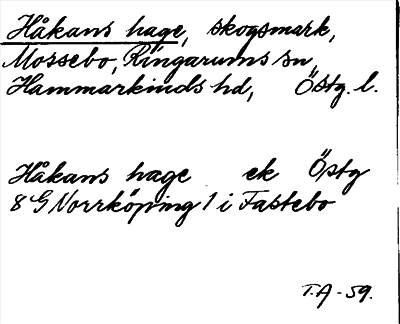 Håkans hage, skogsmark,
Mossebo, Ringarums sn,
Hammarkinds hd, Östg. l.
Håkans hage ek Östg
8 G Norrköping 1 i Fastebo
T.A -59.